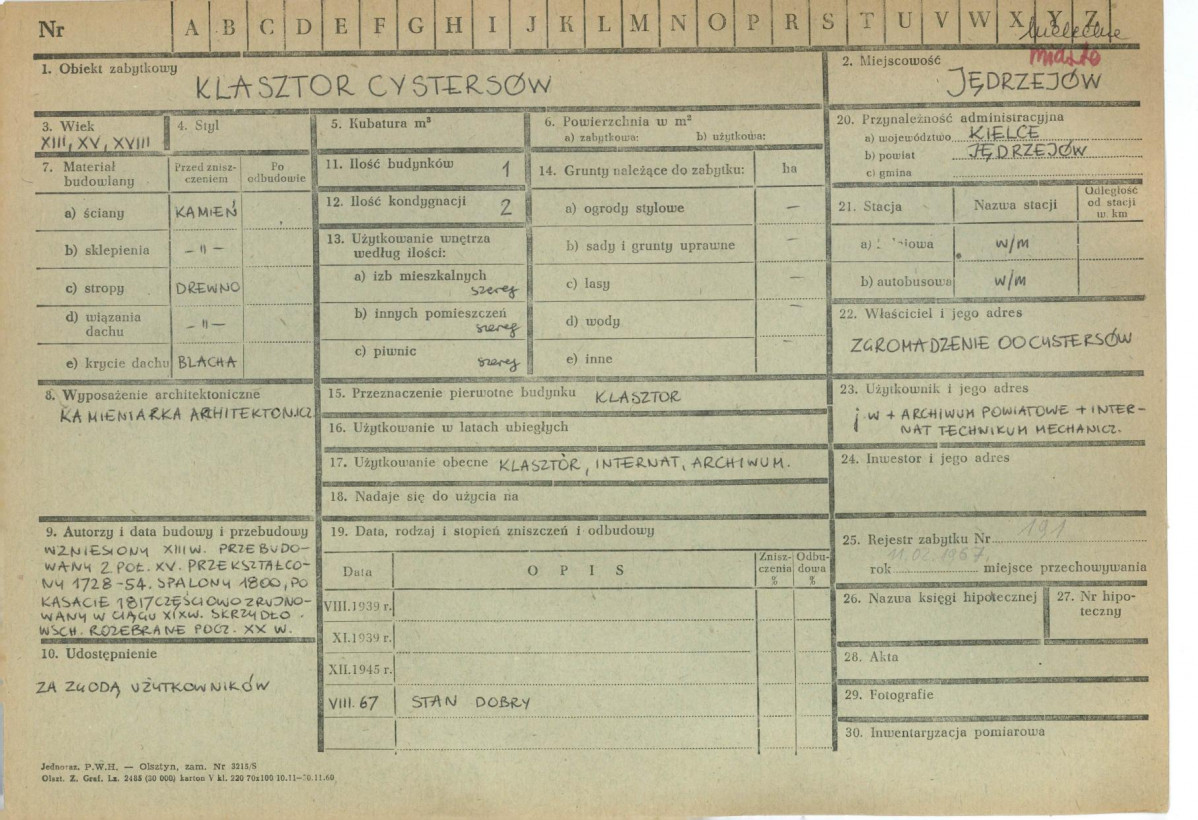 Nr A B C D E F G H I J K L M N O P R S T U V W X Y Z
miasto
1. Obiekt zabytkowy
KLASZTOR CYSTERSÓW
2. Miejscowość
JĘDRZEJÓW
3. Wiek
XIII, XV, XVIII
4. Styl
5. Kubatura m³
6. Powierzchnia w m²
a) zabytkowa: b) użytkowa:
20. Przynależność administracyjna
a) województwo KIELCE
b) powiat JĘDRZEJÓW
c) gmina
7. Materiał budowlany
Przed znisz-
czeniem
Po
odbudowie
a) ściany KAMIEŃ
b) sklepienia —"—
c) stropy DREWNO
d) wiązania
dachu —"—
e) krycie dachu BLACHA
11. Ilość budynków 1
12. Ilość kondygnacji 2
13. Użytkowanie wnętrza
według ilości:
a) izb mieszkalnych
szereg
b) innych pomieszczeń
szereg
c) piwnic
szereg
14. Grunty należące do zabytku: ha
a) ogrody stylowe —
b) sady i grunty uprawne —
c) lasy —
d) wody
e) inne
21. Stacja Nazwa stacji
Odległość
od stacji
w km
a) w/m
b) autobusowa w/m
22. Właściciel i jego adres
ZGROMADZENIE OO CYSTERSÓW
8. Wyposażenie architektoniczne
KAMIENIARKA ARHITEKTONICZ
15. Przeznaczenie pierwotne budynku KLASZTOR
16. Użytkowanie w latach ubiegłych
17. Użytkowanie obecne KLASZTÓR, INTERNAT, ARCHIWUM.
18. Nadaje się do użycia na
23. Użytkownik i jego adres
j.W + ARCHIWUM POWIATOWE + INTER-
NAT TECHNIKUM MECHANICZ.
24. Inwestor i jego adres
9. Autorzy i data budowy i przebudowy
WZNIESIONY XIII W. PRZEBUDO-
WANY 2 POŁ. XV. PRZEKSZTAŁCO-
NY 1728-54. SPALONY 1800, PO
KASACIE 1817 CZĘŚCIOWO ZRUJNO-
WANY W CIĄGU XIX W. SKRZYDŁO
WSCH. ROZEBRANE POCZ. XX W.
10. Udostępnienie
ZA ZGODĄ UŻYTKOWNIKÓW
19. Data, rodzaj i stopień zniszczeń i odbudowy
Data O P I S
Znisz-
czenia
%
Odbu-
dowa
%
VIII.1939 r.
XI.1939 r.
XII.1945 r.
VIII.67 STAN DOBRY
25. Rejestr zabytku Nr 191
11.02.1967.
rok miejsce przechowywania
26. Nazwa księgi hipotecznej
27. Nr hipo-
teczny
28. Akta
29. Fotografie
30. Inwentaryzacja pomiarowa
Jednoraz. P.W.H. — Olsztyn, zam. Nr 3215/S
Olszt. Z. Graf. Lz. 2485 (30 000) karton V kl. 220 70x100 10.11—30.11.60